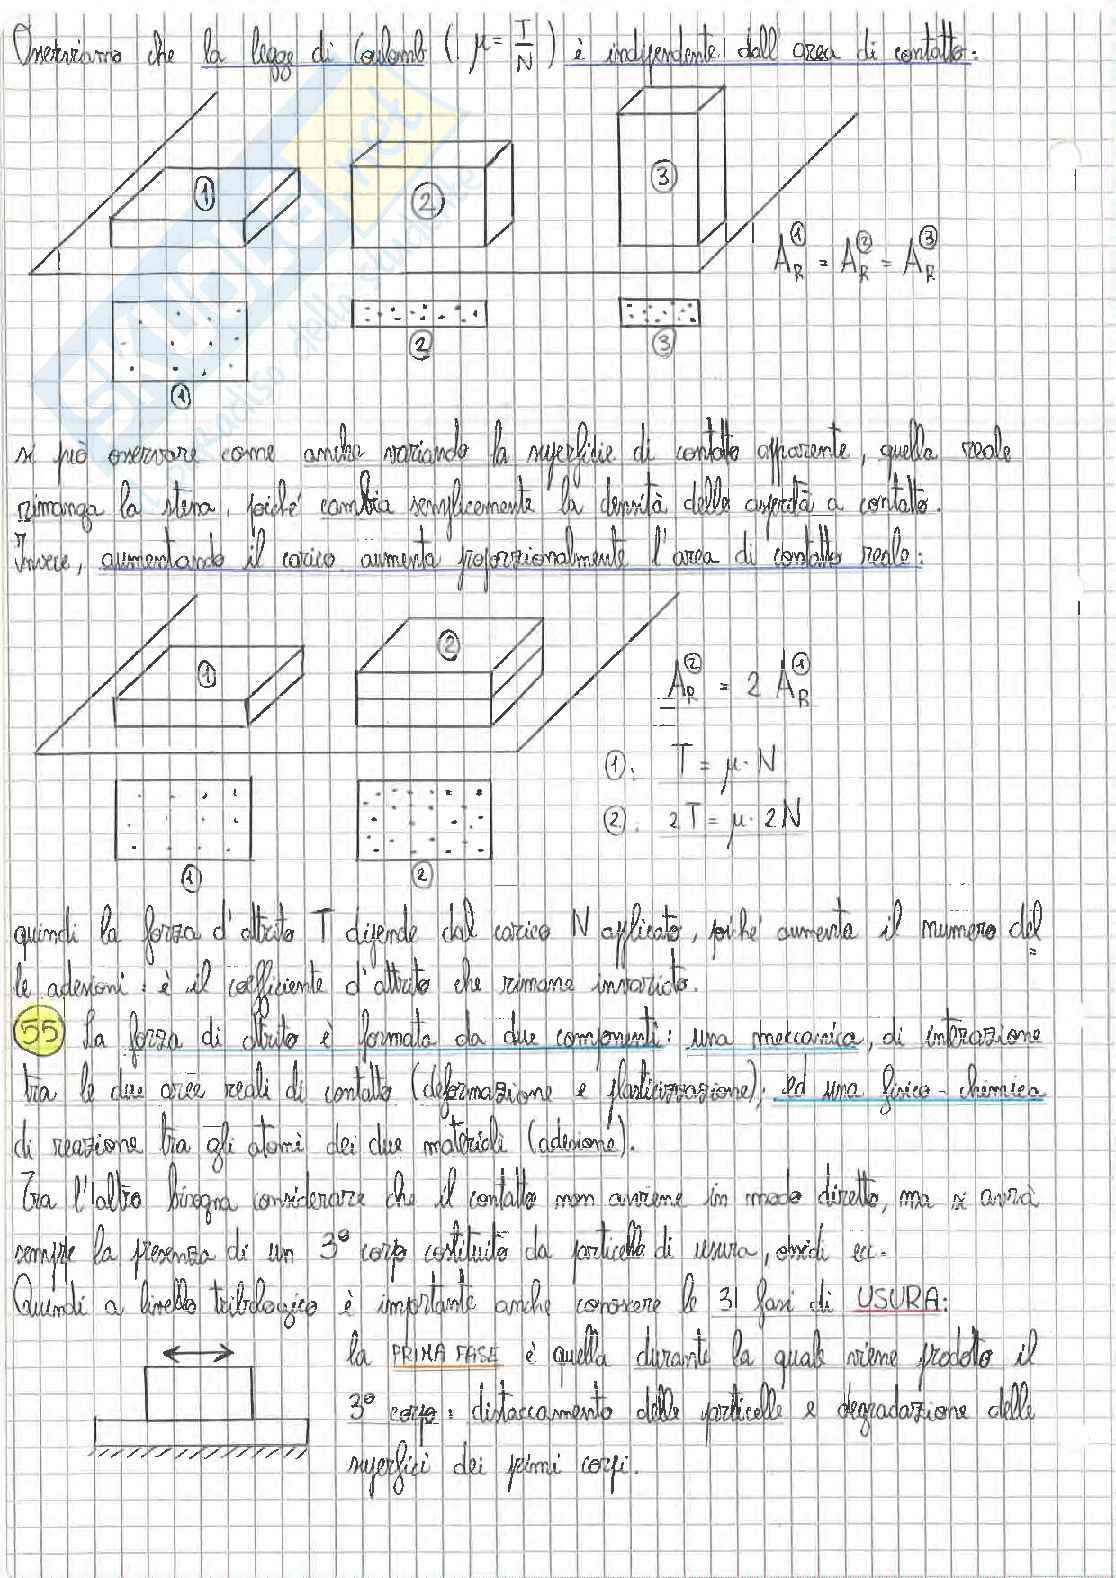 Osserviamo che la legge di Coulomb ( μ = T/N ) è indipendente dall area di contatto:
1 2 3
A_R^① = A_R^② = A_R^③
1 2 3
si può osservare come anche variando la superficie di contatto apparente, quella reale
rimanga la stessa, poiché cambia semplicemente la densità delle asperità a contatto.
Invece, aumentando il carico aumenta proporzionalmente l'area di contatto reale:
1 2
A_R^② = 2 A_R^①
①: T = μ · N
②: 2T = μ · 2N
1 2
quindi la forza d'attrito T dipende dal carico N applicato, poiché aumenta il numero del
le adesioni: è il coefficiente d'attrito che rimane invariato.
55 La forza di attrito è formata da due componenti: una meccanica, di interazione
tra le due aree reali di contatto (deformazione e plasticizzazione); ed una fisico-chimica
di reazione tra gli atomi dei due materiali (adesione).
Tra l'altro bisogna considerare che il contatto non avviene in modo diretto, ma si avrà
sempre la presenza di un 3° corpo costituito da particelle di usura, ossidi ecc.
Quindi a livello tribologico è importante anche conoscere le 3 fasi di USURA:
la PRIMA FASE è quella durante la quale viene prodotto il
3° corpo: distaccamento delle particelle e degradazione delle
superfici dei primi corpi.
SKUOLA.net
paradiso dello studente